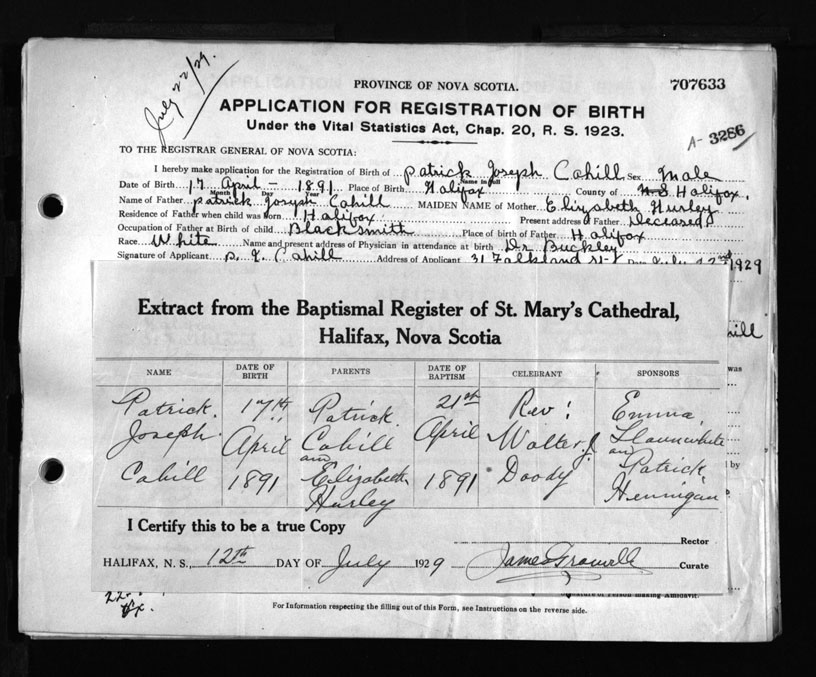 July 22/29.
PROVINCE OF NOVA SCOTIA. 707633
APPLICATION FOR REGISTRATION OF BIRTH
Under the Vital Statistics Act, Chap. 20, R. S. 1923.
A- 3286
TO THE REGISTRAR GENERAL OF NOVA SCOTIA:
I hereby make application for the Registration of Birth of Patrick Joseph Cahill Sex Male
Name in full
Date of Birth 17 April - 1891 Place of Birth Halifax County of N.S Halifax.
Month Day Year
Name of Father Patrick Joseph Cahill MAIDEN NAME of Mother Elizabeth Hurley
Residence of Father when child was born Halifax Present address of Father Deceased
Occupation of Father at Birth of child Blacksmith Place of birth of Father Halifax
Race White Name and present address of Physician in attendance at birth Dr Buckley
Signature of Applicant P. J. Cahill Address of Applicant 31 Falkland St July 22nd 1929
Extract from the Baptismal Register of St. Mary's Cathedral,
Halifax, Nova Scotia
NAME DATE OF BIRTH PARENTS DATE OF BAPTISM CELEBRANT SPONSORS
Patrick 17th Patrick 21st Rev: Emma
Joseph April Cahill April Walter J.
and and
Cahill 1891 Elizabeth 1891 Doody Patrick
Hurley Hennigan
was
by
I Certify this to be a true Copy
Rector
HALIFAX, N. S., 12th DAY OF July 1929 Curate
22.
Signature of Person making Affidavit.
For Information respecting the filling out of this Form, see Instructions on the reverse side.